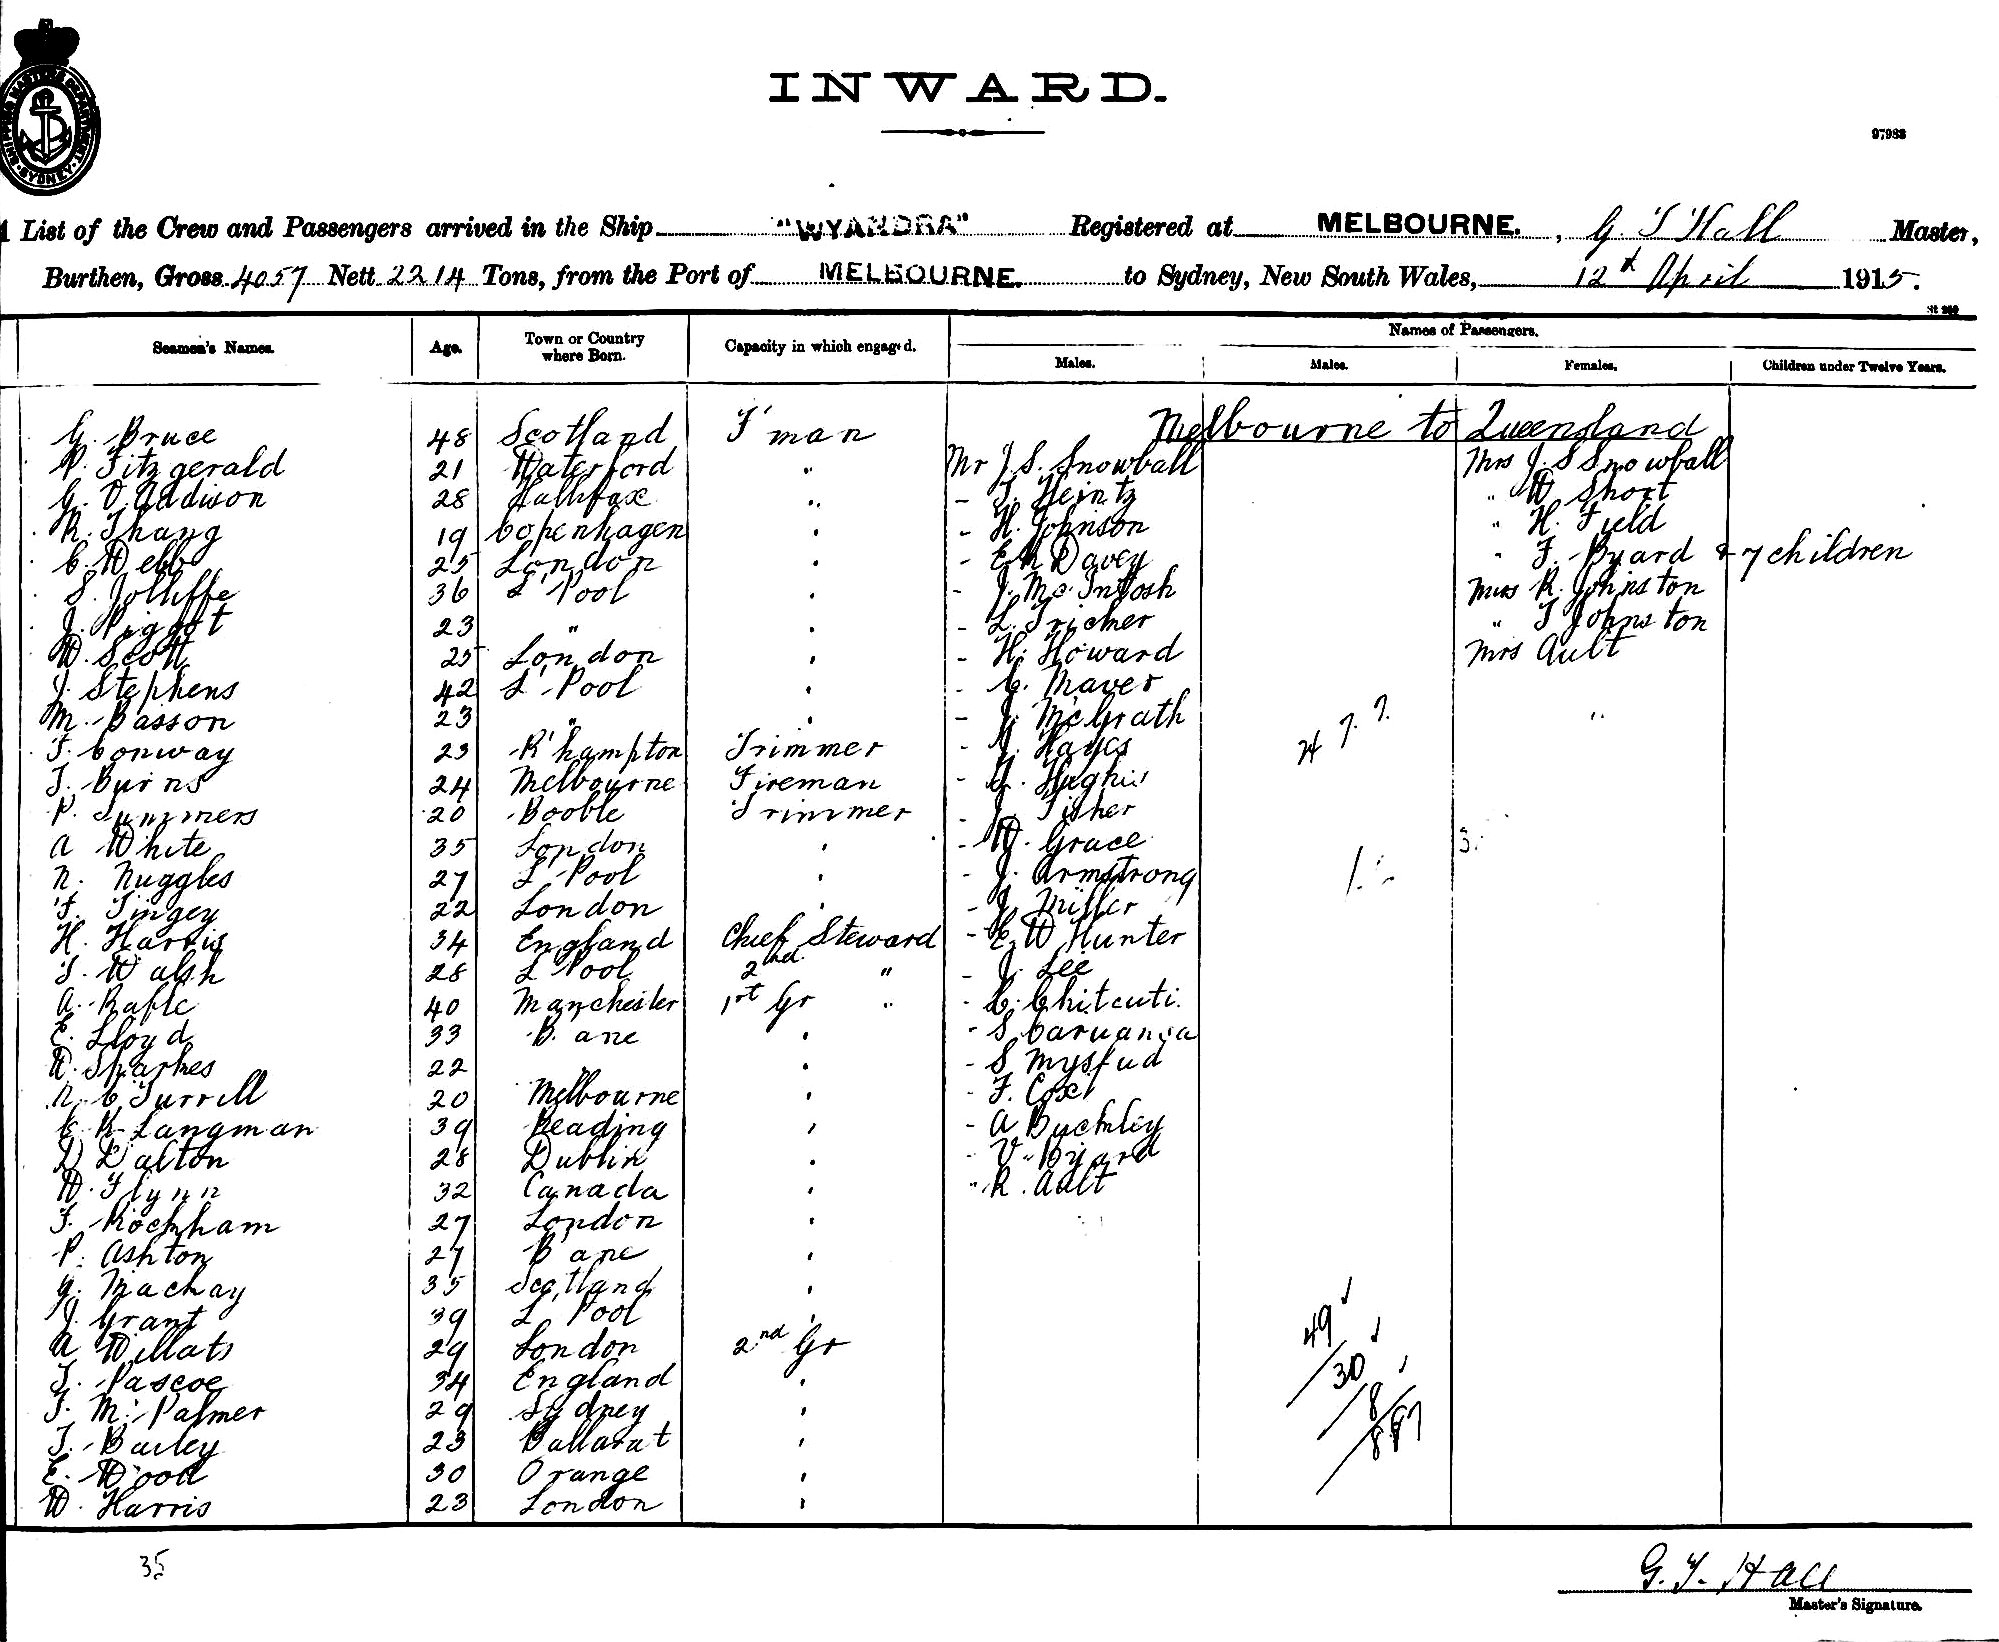 SHIPPING MASTER'S DEPARTMENT SYDNEY
INWARD.
97983
A List of the Crew and Passengers arrived in the Ship "WYANDRA" Registered at MELBOURNE. , G T Hall Master,
Burthen, Gross 4057 Nett 2214 Tons, from the Port of MELBOURNE. to Sydney, New South Wales, 12th April 1915.
Names of Passengers.
Seamen's Names. Age. Town or Country where Born. Capacity in which engaged. Males. Males. Females. Children under Twelve Years.
Melbourne to Queensland
G. Bruce 48 Scotland F'man
P. Fitzgerald 21 Waterford " Mr J. S. Snowball Mrs J. S Snowball
G. V. Addison 28 Hallifax " - J. Heintz " W Short
R. Thang 19 Copenhagen " - H. Johnson " H. Field
C. Webb 25 London " - E A Davey " F. Byard & 7 children
S. Jolliffe 36 L'Pool " - J. McIntosh Miss R. Johnston
J. Piggot 23 " " - L. Tricher " T Johnston
W. Scott 25 London " - H. Howard Mrs Ault
J. Stephens 42 L'Pool " - C. Maver
M. Basson 23 " " - J. McGrath
T. Conway 23 R'hampton Trimmer - J. Hayes
T. Burns 24 Melbourne Fireman - G. Hughes
P. Summers 20 Booble Trimmer - J. Fisher
A White 35 London " - W. Grace
N. Nuggles 27 L'Pool " - J. Armstrong
F. Tingey 22 London " - J. Miller
H. Harris 34 England Chief Steward - E. W Hunter
T. Walsh 28 L Pool 2nd " - J. Lee
A. Rafle 40 Manchester 1st Gr " - C. Chitcuti.
E. Lloyd 33 B.ane " - S Caruana
W. Sparkes 22 " " - S Mysfud
N. C Turrill 20 Melbourne " - F. Cox
C R Langman 39 Reading " - A Buckley
D Dalton 28 Dublin " - V. Byard
W. Flynn 32 Canada " " R. Ault
F. Rockham 27 London "
P. Ashton 27 B'ane "
G. Mackay 35 Scotland "
J. Grant 39 L'Pool "
A Willats 29 London 2nd Gr
T. Pascoe 34 England "
F. M. Palmer 29 Sydney "
T. Bailey 23 Ballarat "
E. Wood 30 Orange "
W. Harris 23 London "
49
30
8
87
35
G. T. Hall
Master's Signature.